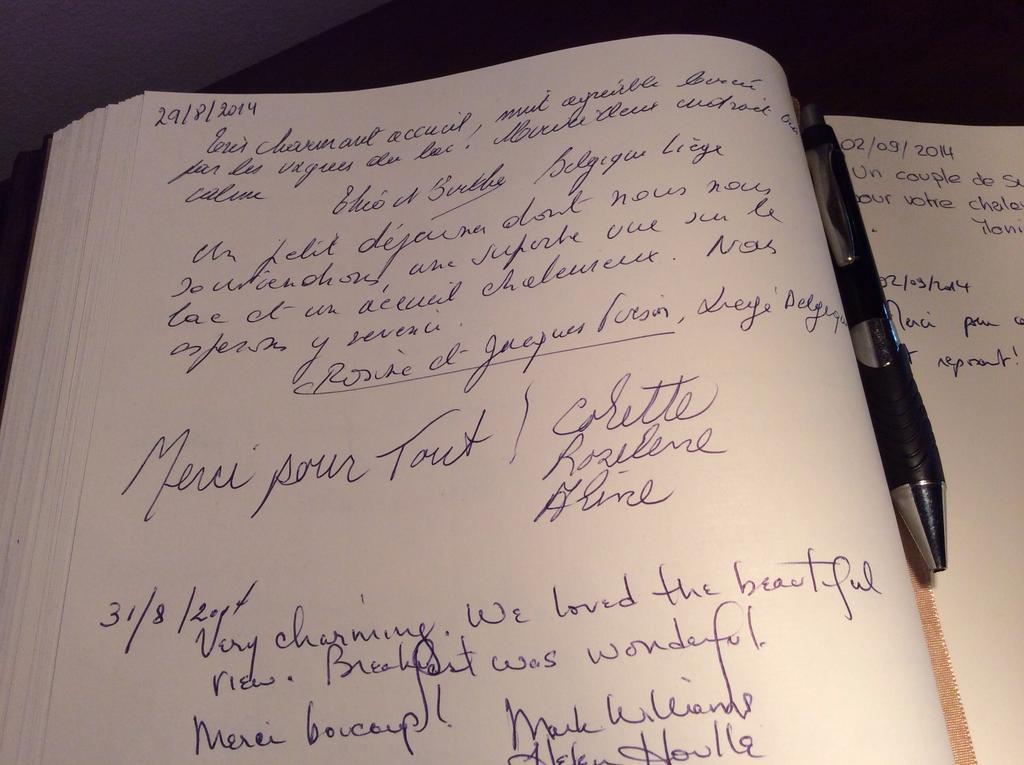 29/8/2014
Très charmant accueil, nuit agréable bercé
par les vagues du lac! Merveilleux endroit
calme
Belgique Liège
Un petit déjeuner dont nous nous
souviendrons, une superbe vue sur le
lac et un accueil chaleureux. Nous
espérons y revenir.
Rosine et Jacques
Merci pour Tout! Colette
Roselene
Aline
31/8/
Very charming. We loved the beautiful
view. Breakfast was wonderful.
Merci boucoup! Mark Williams
Helen Houlle
02/09/2014
Un couple de
pour votre
02/09/2014
Merci pour